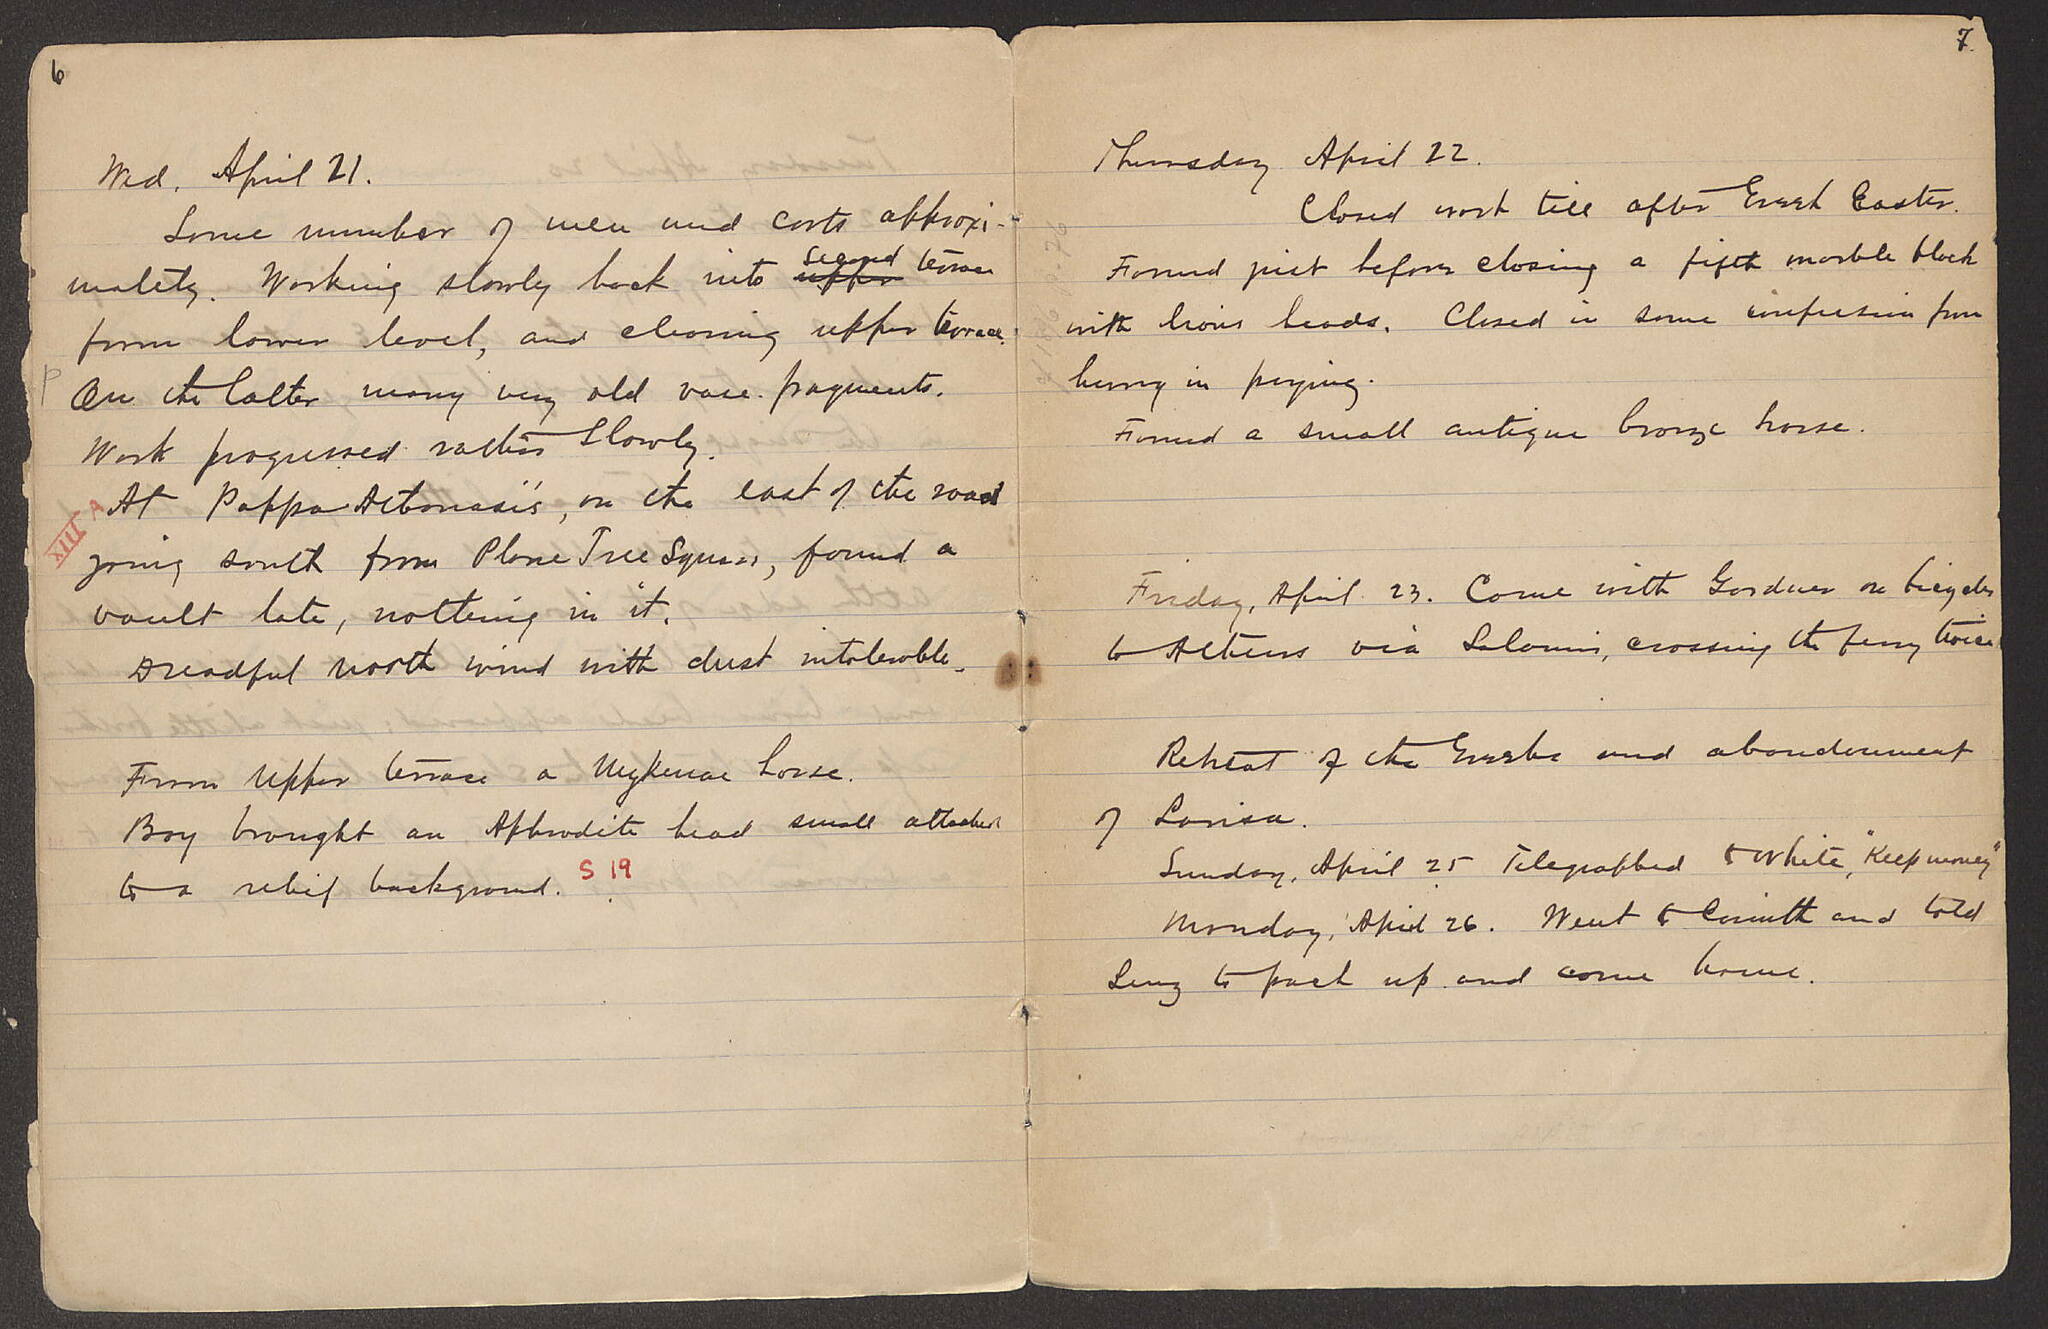 6
Wed. April 21.
Same number of men and carts approxi-
mately. Working slowly back into upper second terrace
from lower level, and clearing upper terrace.
P
On the latter many very old vase fragments.
Work progressed rather slowly.
XIII A
At Pappa Athanasis', on the east of the road
going south from Plane Tree Square, found a
vault late, nothing in it.
Dreadful north wind with dust intolerable.
From upper terrace a Mykenae horse.
Boy brought an Aphrodite head small attached
to a relief background. S 19
7
Thursday April 22.
Closed work till after Greek Easter.
Found just before closing a fifth marble block
with lions heads. Closed in some confusion from
hurry in paying.
Found a small antique bronze horse.
Friday, April 23. Came with Gardner on bicycles
to Athens via Salamis, crossing the ferry twice.
Retreat of the Greeks and abandonment
of Larisa.
Sunday, April 25 Telegraphed to White, "Keep money"
Monday, April 26. Went to Corinth and told
to pack up and come home.